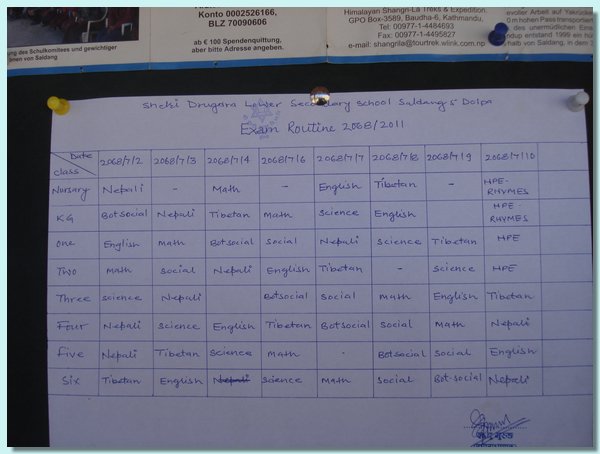 Konto 0002526166,
BLZ 70090606
ab € 100 Spendenquittung,
aber bitte Adresse angeben.
ung des Schulkomitees und gewichtiger
innen von Saldang
Himalayan Shangri-La Treks & Expedition.
GPO Box-3589, Baudha-6, Kathmandu,
Tel: 00977-1-4484693
Fax: 00977-1-4495827
e-mail: shangrila@tourtrek.wlink.com.np
evoller Arbeit auf Yakrücke
0 m hohen Pass transportien
des unermüdlichen Eins
ndup entstand 1999 ein ho
rhalb von Saldang, in dem 3
Sheki Drugara Lower Secondary School Saldang 5 Dolpa
Exam Routine 2068/2011
Date
class 2068/7/2 2068/7/3 2068/7/4 2068/7/6 2068/7/7 2068/7/8 2068/7/9 2068/7/10
Nursary Nepali - Math - English Tibetan - HPE-
RHYMES
KG Botsocial Nepali Tibetan Math Science English HPE-
RHYMES
One English Math Botsocial Social Nepali Science Tibetan HPE
Two Math Social Nepali English Tibetan - Science HPE
Three Science Nepali Botsocial Social Math English Tibetan
Four Nepali Science English Tibetan Botsocial Social Math Nepali
five Nepali Tibetan Science Math - Botsocial Social English
Six Tibetan English Nepali Science Math Social Bot-social Nepali